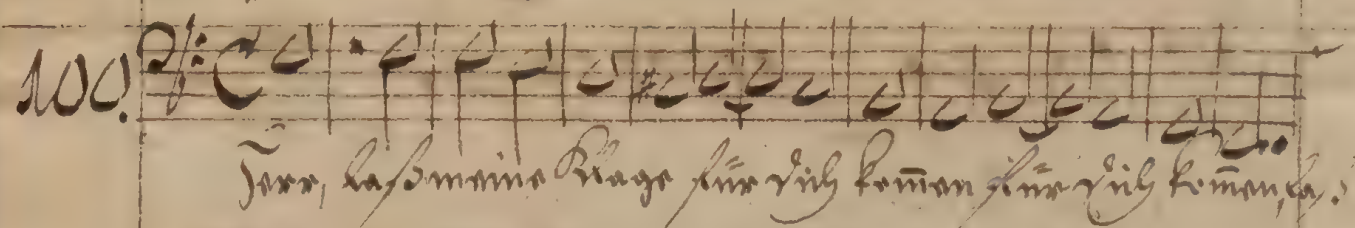 100.
Herr, laß meine Klage für dich kom̅en für dich kom̅en, la: